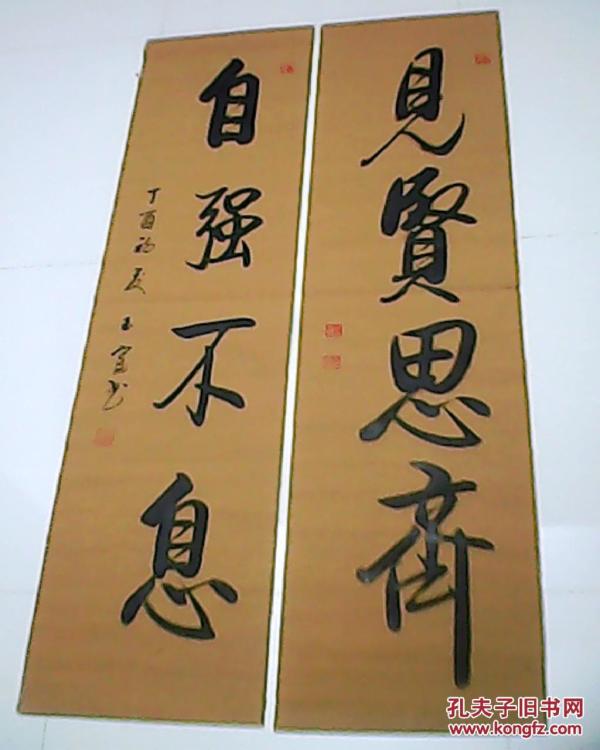 見賢思齊
自强不息
丁酉初夏
玉宝书
孔夫子旧书网
www.kongfz.com